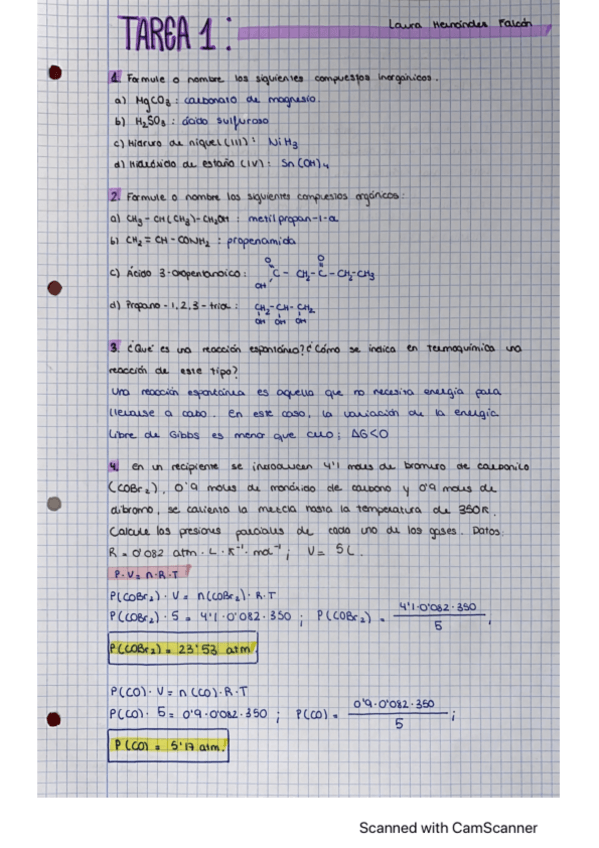 TAREA 1:
Laura Hernández Falcón
1. Formule o nombre los siguientes compuestos inorgánicos.
a) MgCO3: carbonato de magnesio.
b) H2SO3: ácido sulfuroso
c) Hidruro de níquel (III): NiH3
d) Hidróxido de estaño (IV): Sn(OH)4
2. Formule o nombre los siguientes compuestos orgánicos:
a) CH3-CH(CH3)-CH2OH: metilpropan-1-ol
b) CH2=CH-CONH2: propenamida
c) Ácido 3-oxopentanoico: O OH C-CH2-C-CH2-CH3 O
d) Propano-1,2,3-triol: CH2-CH-CH2
OH OH OH
3. ¿Qué es una reacción espontánea? ¿Cómo se indica en termoquímica una
reacción de este tipo?
Una reacción espontánea es aquella que no necesita energía para
llevarse a cabo. En este caso, la variación de la energía
libre de Gibbs es menor que cero; ΔG<0
4. En un recipiente se introducen 4'1 moles de bromuro de carbonilo
(COBr2), 0'9 moles de monóxido de carbono y 0'9 moles de
dibromo, se calienta la mezcla hasta la temperatura de 350K.
Calcule las presiones parciales de cada uno de los gases. Datos:
R = 0'082 atm·L·K⁻¹·mol⁻¹; V = 5L.
P·V=n·R·T
P(COBr2)·V = n(COBr2)·R·T
P(COBr2)·5 = 4'1·0'082·350; P(COBr2) = 4'1·0'082·350 / 5;
P(COBr2) = 23'53 atm.
P(CO)·V = n(CO)·R·T
P(CO)·5 = 0'9·0'082·350; P(CO) = 0'9·0'082·350 / 5;
P(CO) = 5'17 atm.
Scanned with CamScanner